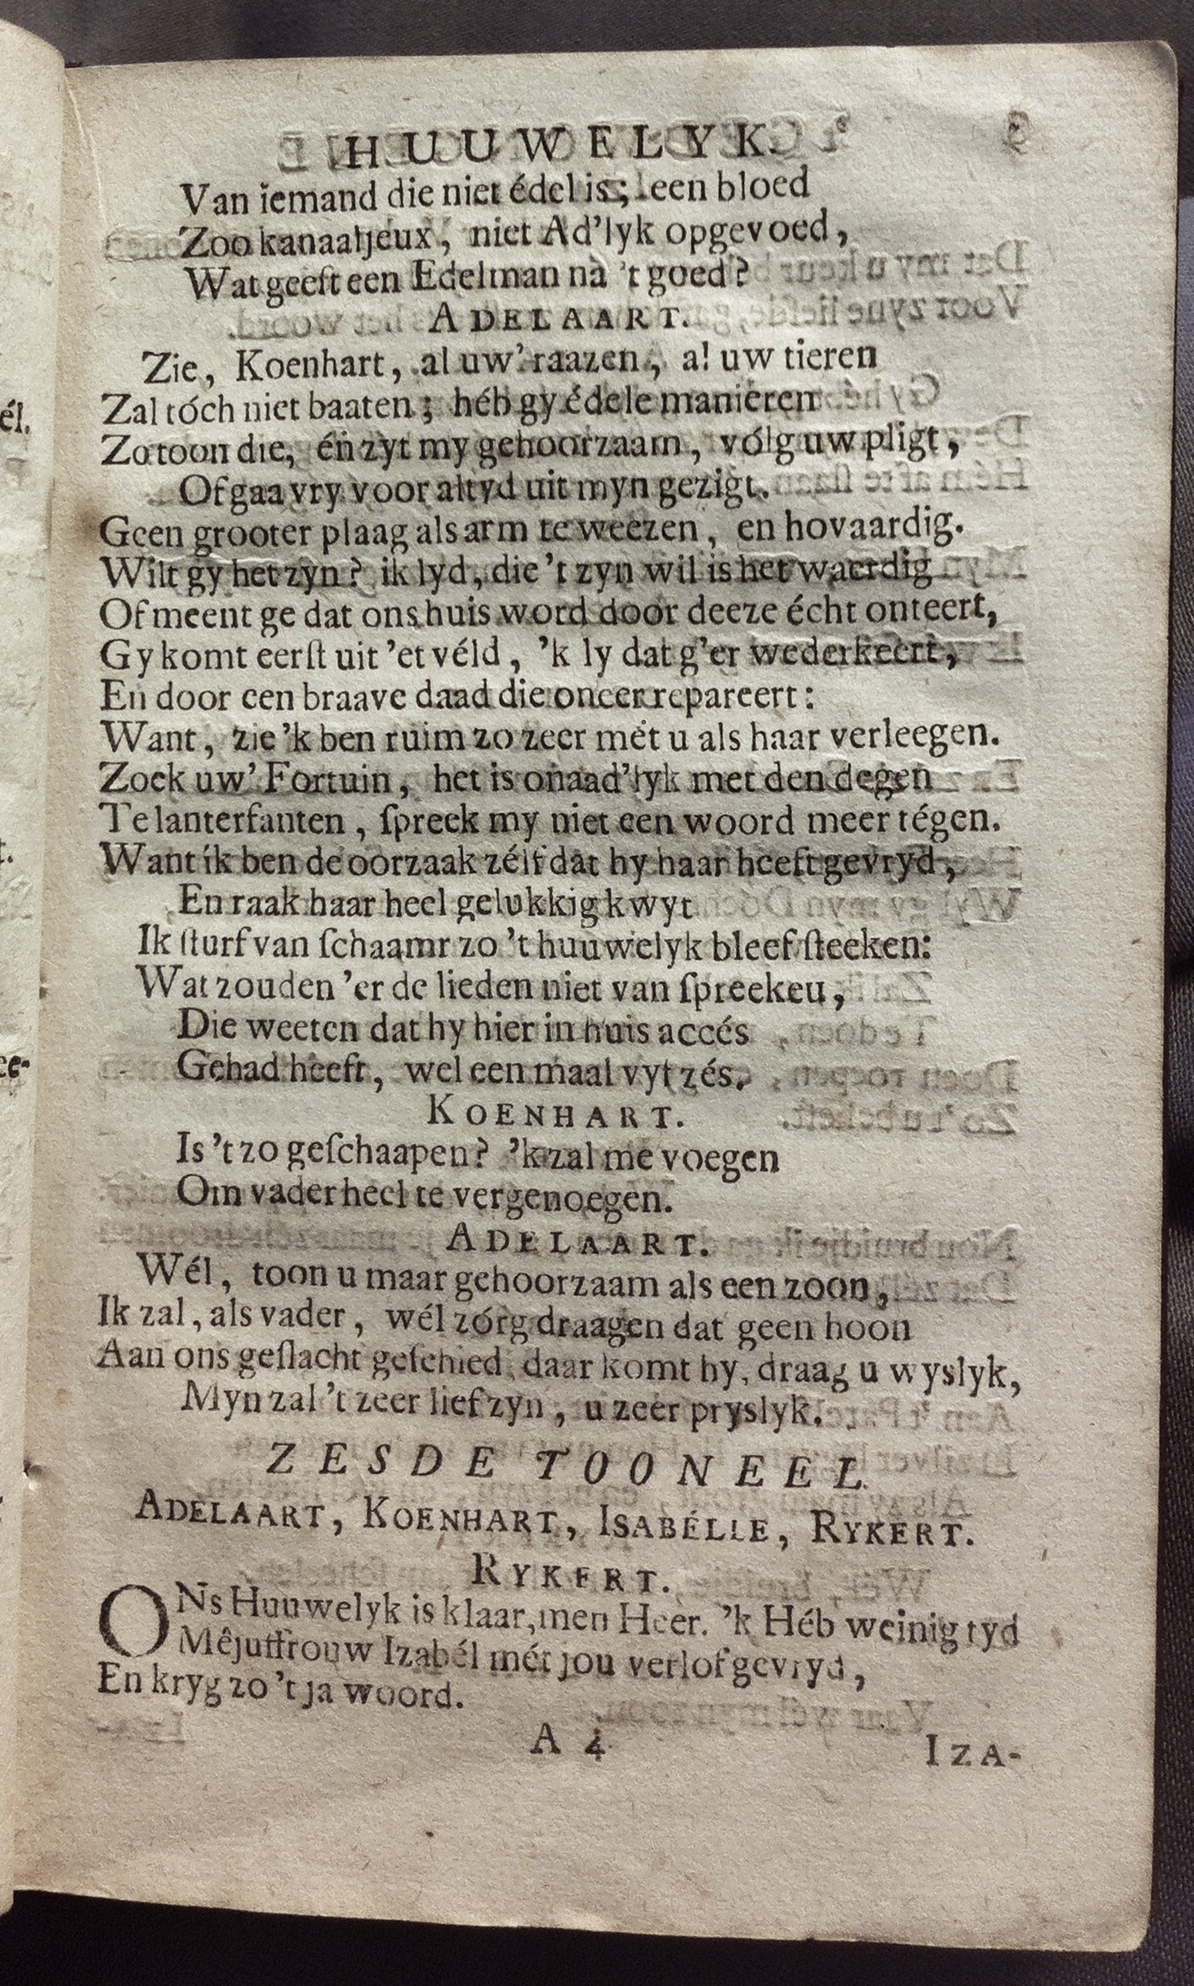 HUUWELYK. 9
Van iemand die niet édel is; een bloed
Zoo kanaaljeux, niet Ad'lyk opgevoed,
Wat geeft een Edelman na 't goed?
ADELAART.
Zie, Koenhart, al uw' raazen, al uw tieren
Zal tóch niet baaten; héb gy édele maniéren
Zo toon die, én zyt my gehoorzaam, vólg uw pligt,
Of gaa vry voor altyd uit myn gezigt.
Geen grooter plaag als arm te weezen, en hovaardig.
Wilt gy het zyn? ik lyd, die 't zyn wil is het waerdig
Of meent ge dat ons huis word door deeze écht onteert,
Gy komt eerſt uit 'et véld, 'k ly dat g'er wederkeert,
En door een braave daad die oneer repareert:
Want, zie 'k ben ruim zo zeer mét u als haar verleegen.
Zoek uw' Fortuin, het is onaad'lyk met den degen
Te lanterfanten, ſpreek my niet een woord meer tégen.
Want ik ben de oorzaak zélf dat hy haar heeft gevryd,
En raak haar heel gelukkig kwyt
Ik ſturf van ſchaamr zo 't huuwelyk bleef ſteeken:
Wat zouden 'er de lieden niet van ſpreekeu,
Die weeten dat hy hier in huis accés
Gehad heeft, wel een maal vyf zés.
KOENHART.
Is 't zo geſchaapen? 'k zal me voegen
Om vader heel te vergenoegen.
ADELAART.
Wél, toon u maar gehoorzaam als een zoon,
Ik zal, als vader, wél zórg draagen dat geen hoon
Aan ons geſlacht geſchied, daar komt hy, draag u wyslyk,
Myn zal 't zeer lief zyn, u zeer pryslyk.
ZESDE TOONEEL.
ADELAART, KOENHART, ISABÉLLE, RYKERT.
RYKERT.
ONs Huuwelyk is klaar, men Heer. 'k Héb weinig tyd
Mêjuffrouw Izabél mét jou verlof gevryd,
En kryg zo 't ja woord.
A 4 IZA-